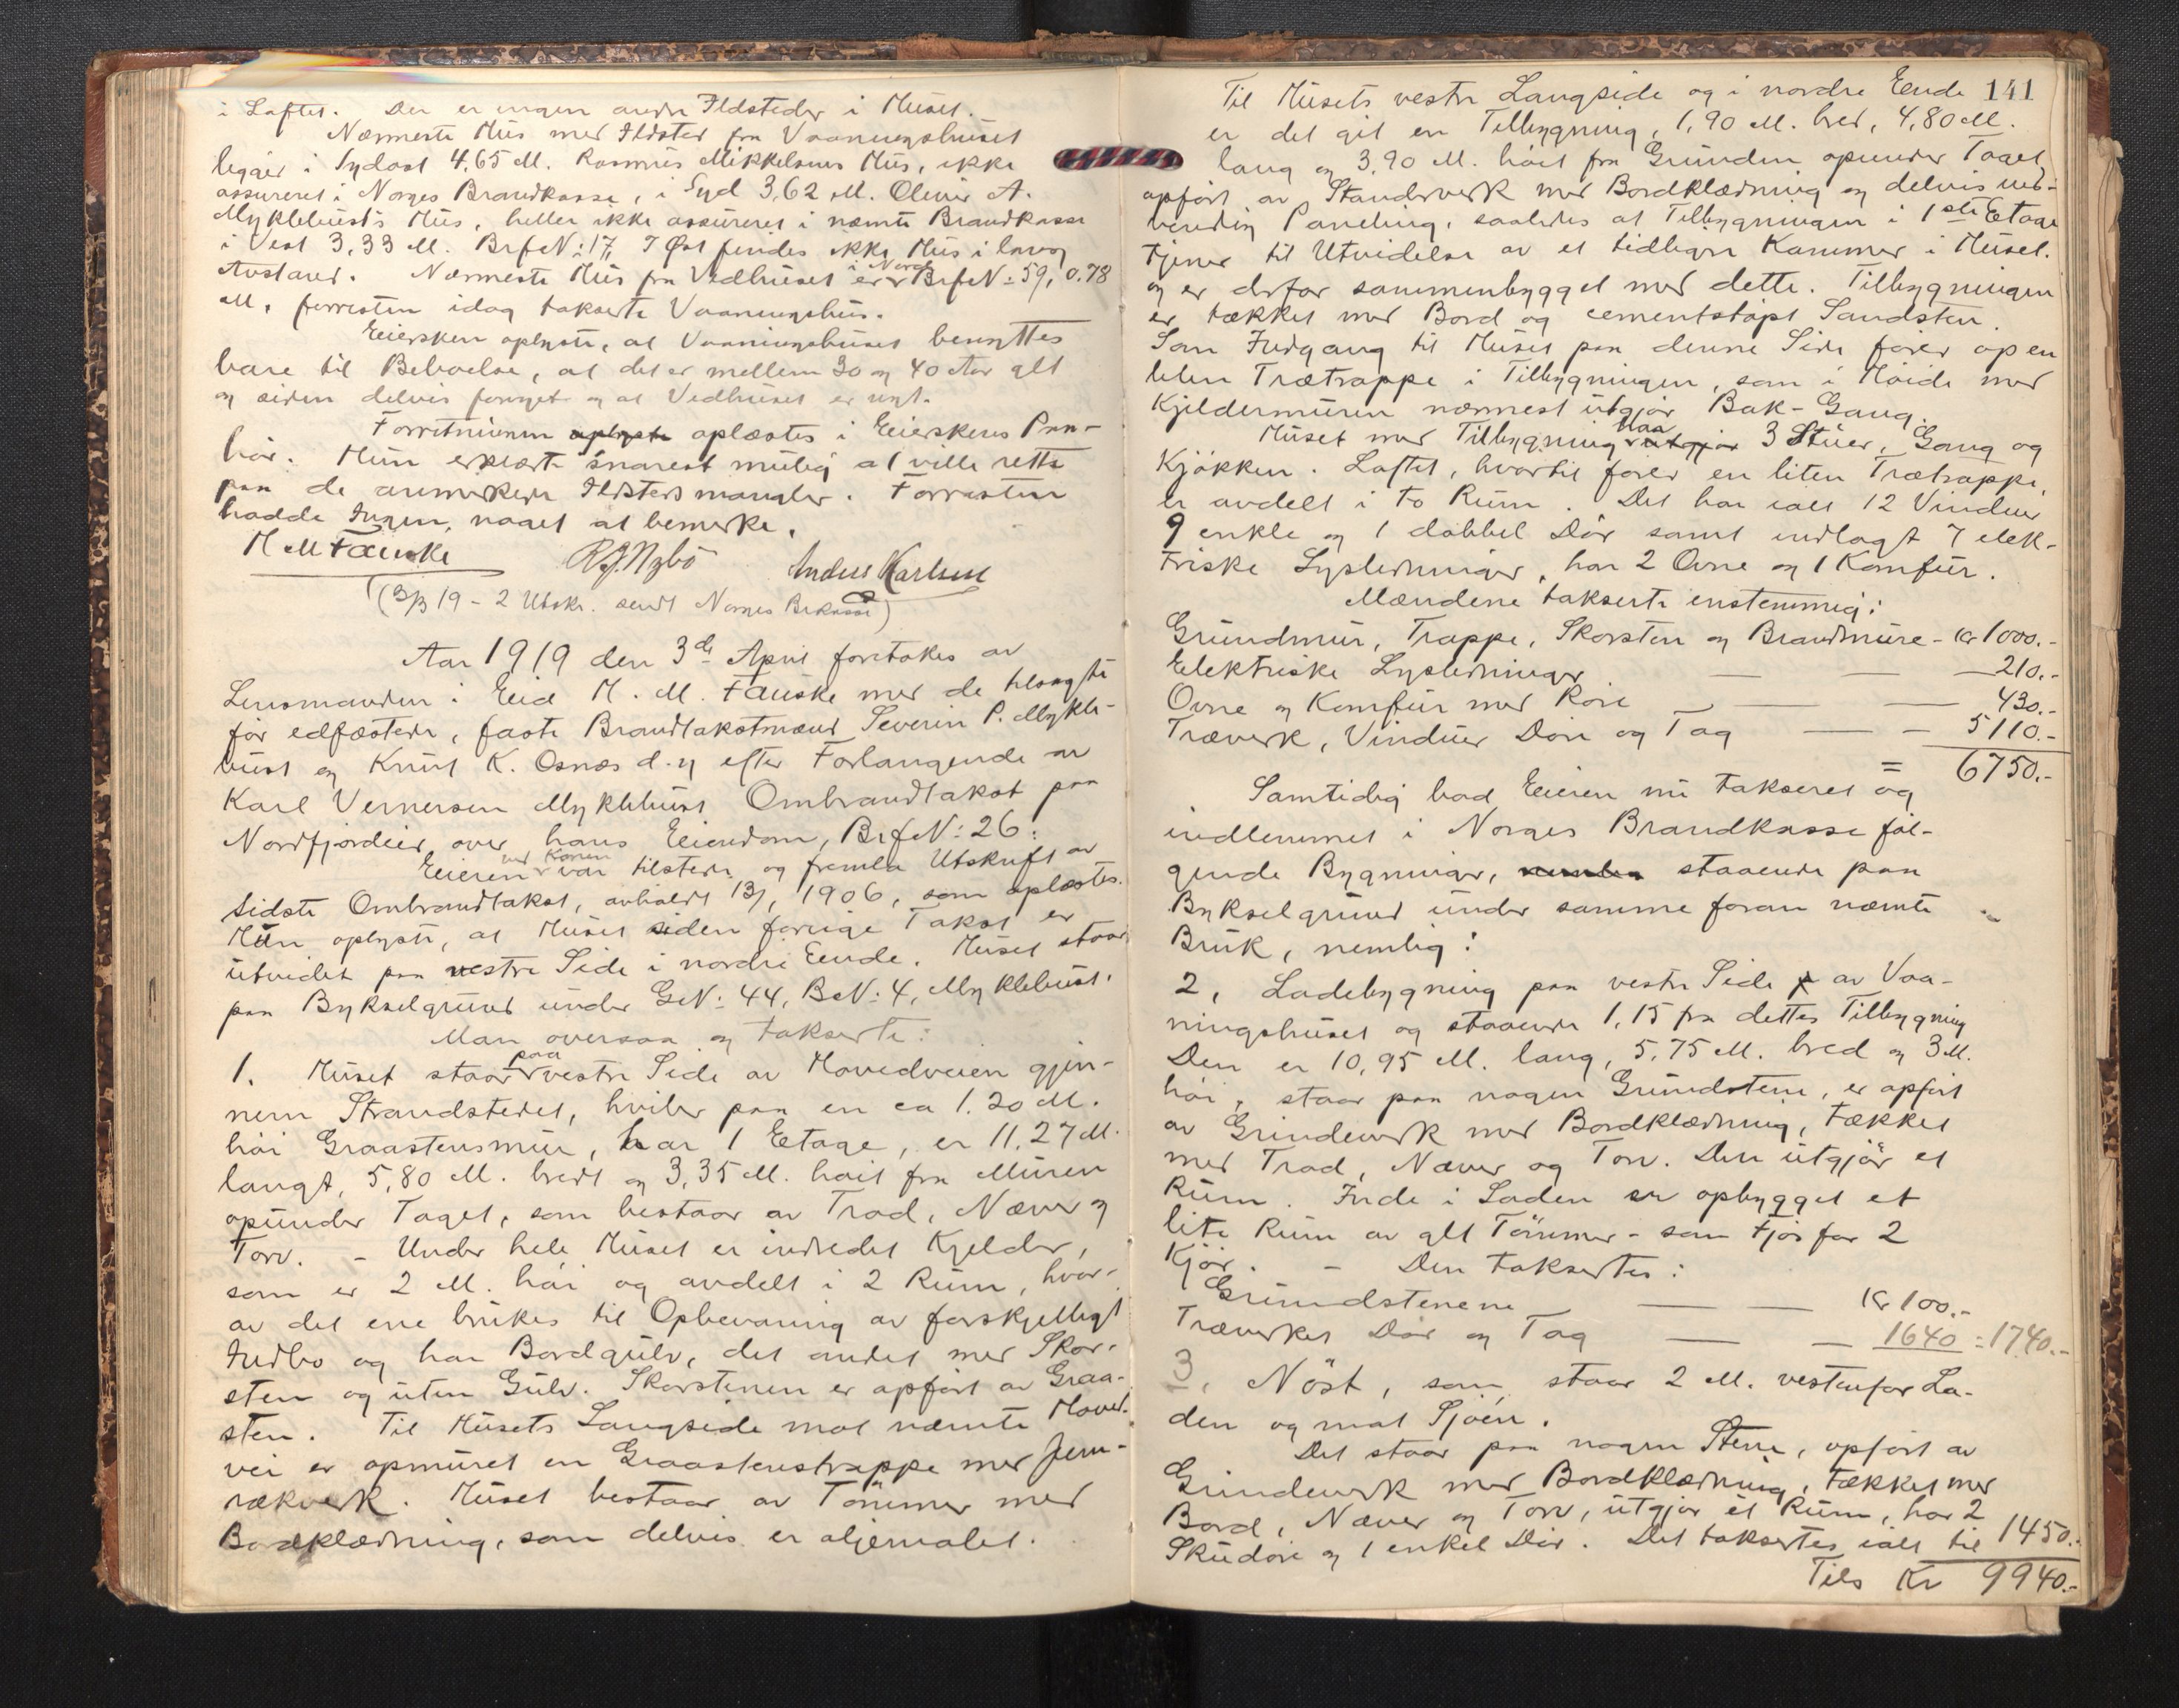 i Loftet. Der er ingen andre Ildsteder i Huset.
Nærmeste Hus med Ildsted fra Vaaningshuset
ligger i Sydost 4,65 M. Rasmus Mikkelsens Hus, ikke
assureret i Norges Brandkasse, i Syd 3,62 M. Oliver A.
Myklebust's Hus, heller ikke assureret i nævnte Brandkasse
i Vest 3,33 M. BrfN: 17, I Øst findes ikke Hus i lovlig
Avstand. Nærmeste Hus fra Vedhuset er i Nord BrfN: 59, 0.78
M, forresten idag takserte Vaaningshus.
Eiersken oplyste, at Vaaningshuset benyttes
bare til Beboelse, at det er mellem 30 og 40 Aar glt
og siden delvis fornyet og at Vedhuset er nyt.
Forretningen oplyste oplæstes i Eierskens Paa-
hør. Hun erklærte snarest mulig at ville rette
paa de anmerkede Ildstedsmangler. Forresten
hadde Ingen noget at bemerke.
M M Fauske R.J. Nybö Anders Karlsen
(3/3 19 - 2 Utskr. sendt Norges Brkasse)
Aar 1919 den 3de April foretokes av
Lensmanden i Eid M. M. Fauske med de tilsagte
før edfæstede, faste Brandtakstmænd Severin P. Mykle-
bust og Knut K. Osnes d. y efter Forlangende av
Karl Vernersen Myklebust Ombrandtakst paa
Nordfjordeid over hans Eiendom, BrfN: 26:
Eieren ved Konen var tilstede og fremla Utskrift av
sidste Ombrandtakst, avholdt 13/1 1906, som oplæstes.
Hun oplyste, at Huset siden forrige Takst er
utvidet paa vestre Side i nordre Eende. Huset staar
paa Bykselgrund under GN: 44, BN: 4, Myklebust.
Man oversaa og takserte:
1. Huset staar paa vestre Side av Hovedveien gjen-
nem Strandstedet, hviler paa en ca 1.20 M.
høi Graastensmur, har 1 Etage, er 11.27 M.
langt, 5,80 M. bredt og 3,35 M. høit fra Muren
opunder Taget, som bestaar av Trod, Næver og
Torv. - Under hele Huset er indredet Kjelder,
som er 2 M. høi og avdelt i 2 Rum, hvor-
av det ene brukes til Opbevaring av forskjelligt
Indbo og har Bordgulv, det andet med Skor-
sten og uten Gulv. Skorstenen er opført av Graa-
sten. Til Husets Langside mot nævnte Hoved-
vei er opmuret en Graastenstrappe med Jern-
rækverk. Huset bestaar av Tömmer med
Bordklædning, som delvis er oljemalet.
141
Til Husets vestre Langside og i nordre Eende
er det git en Tilbygning, 1,90 M. bred, 4,80 M.
lang og 3,90 M. høit fra Grunden opunder Taget,
opført av Standerverk med Bordklædning og delvis ind-
vendig Paneling, saaledes at Tilbygningen i 1ste Etage
tjener til Utvidelse av et tidligere Kammer i Huset.
og er derfor sammenbygget med dette. Tilbygningen
er tækket med Bord og cementstøpt Sandsten.
Som Indgang til Huset paa denne Side fører op en
liten Trætrappe i Tilbygningen, som i Høide med
Kjeldermuren nærmest utgjør Bak-Gang.
Huset med Tilbygning utgjør Haa 3 Stuer, Gang og
Kjøkken. Loftet, hvortil fører en liten Trætrappe,
er avdelt i to Rum. Det har ialt 12 Vinduer
9 enkle og 1 dobbel Dör samt indlagt 7 elek-
triske Lysledninger, har 2 Ovne og 1 Komfur.
Mændene takserte enstemmig:
Grundmur, Trappe, Skorsten og Brandmure - Kr 1000.-
Elektriske Lysledninger — — — 210.-
Ovne og Komfur med Röre — — 430.-
Træverk, Vinduer Döre og Tag — — 5110.-
= 6750.-
Samtidig bad Eieren nu takseret og
indlemmet i Norges Brandkasse føl-
gende Bygninger, staaende paa
Bykselgrund under samme foran nævnte
Bruk, nemlig:
2, Ladebygning paa vestre Side av Vaa-
ningshuset og staaende 1,15 fra dettes Tilbygning
Den er 10,95 M. lang, 5,75 M. bred og 3 M.
høi, staar paa nogen Grundstene, er opført
av Grindeverk med Bordklædning, tækket
med Trod, Næver og Torv. Den utgjør et
Rum. Inde i Laden er opbygget et
lite Rum av glt Tömmer - som Fjøs for 2
Kjör. - Den taksertes:
Grundstenene — — Kr 100.-
Træverket Dör og Tag — — 1640 = 1740.-
3, Nöst, som staar 2 M. vestenfor La-
den og mot Sjøen.
Det staar paa nogen Stene, opført av
Grindeverk med Bordklædning, tækket med
Bord, Næver og Torv, utgjør et Rum, har 2
Skuddöre og 1 enkel Dör. Det taksertes ialt til 1450.-
Tils Kr 9940.-